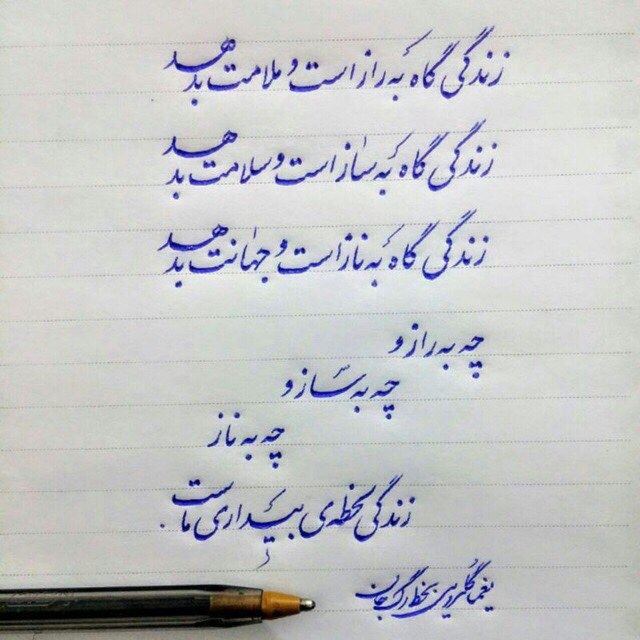 زندگی گاه به راز است و ملامت بدهد
زندگی گاه به ساز است و سلامت بدهد
زندگی گاه به ناز است و جهانت بدهد
چه به راز و
چه به ساز و
چه به ناز
زندگی لحظه‌ی بیداری ماست.
یغما گلرویی بخط